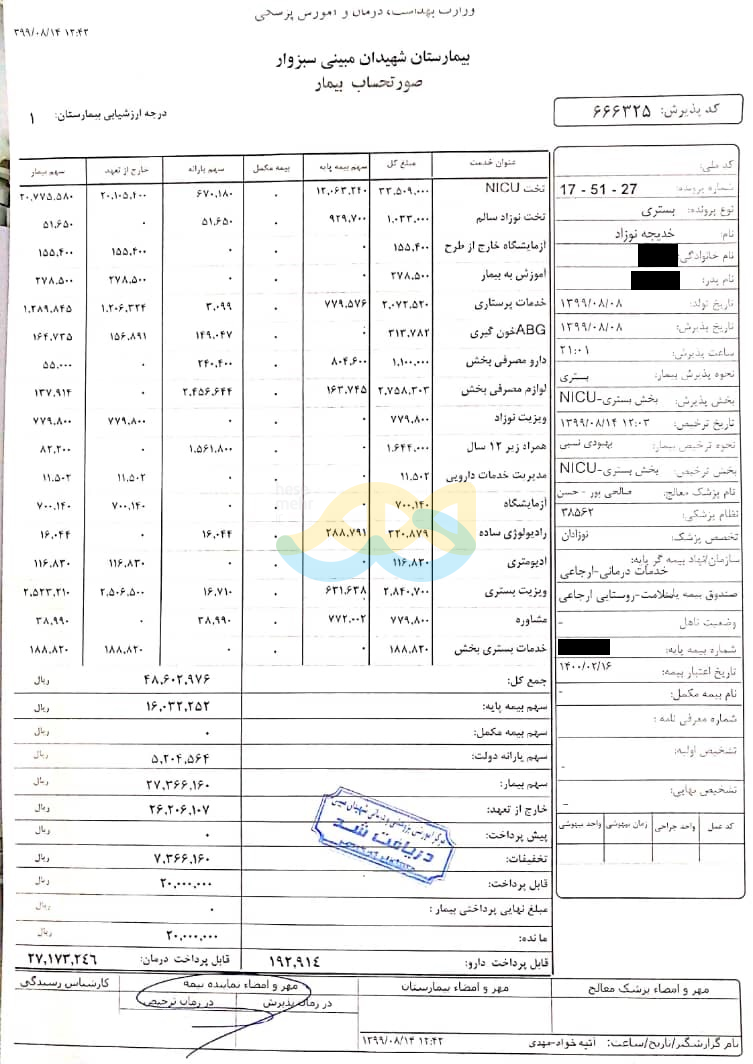 وزارت بهداشت، درمان و آموزش پزشکی
۳۹۹/۰۸/۱۴ ۱۲:۴۲
بیمارستان شهیدان مبینی سبزوار
صورتحساب بیمار
کد پذیرش: ۶۶۶۳۲۵
درجه ارزشیابی بیمارستان: ۱
کد ملی:
شماره پرونده: 17 - 51 - 27
نوع پرونده: بستری
نام: خدیجه نوزاد
نام خانوادگی:
نام پدر:
تاریخ تولد: ۱۳۹۹/۰۸/۰۸
تاریخ پذیرش: ۱۳۹۹/۰۸/۰۸
ساعت پذیرش: ۲۱:۰۱
نحوه پذیرش بیمار: بستری
بخش پذیرش: بخش بستری-NICU
تاریخ ترخیص: ۱۳۹۹/۰۸/۱۴ ۱۲:۰۳
نحوه ترخیص بیمار: بهبودی نسبی
بخش ترخیص: بخش بستری-NICU
نام پزشک معالج: صالحی پور - حسن
نظام پزشکی: ۳۸۵۶۲
تخصص پزشک: نوزادان
سازمان/نهاد بیمه گر پایه:
خدمات درمانی-ارجاعی
صندوق بیمه پایه: سلامت-روستایی ارجاعی
وضعیت تاهل: -
شماره بیمه پایه:
تاریخ اعتبار بیمه: ۱۴۰۰/۰۲/۱۶
نام بیمه مکمل: -
شماره معرفی نامه: -
تشخیص اولیه:
-
تشخیص نهایی:
-
کد عمل واحد جراحی زمان بیهوشی واحد بیهوشی
عنوان خدمت مبلغ کل سهم بیمه پایه بیمه مکمل سهم یارانه خارج از تعهد سهم بیمار
تخت NICU ۳۳,۵۰۹,۰۰۰ ۱۲,۰۶۳,۲۴۰ ۰ ۶۷۰,۱۸۰ ۲۰,۱۰۵,۴۰۰ ۲۰,۷۷۵,۵۸۰
تخت نوزاد سالم ۱,۰۳۳,۰۰۰ ۹۲۹,۷۰۰ ۰ ۵۱,۶۵۰ ۰ ۵۱,۶۵۰
آزمایشگاه خارج از طرح ۱۵۵,۴۰۰ ۰ ۰ ۰ ۱۵۵,۴۰۰ ۱۵۵,۴۰۰
آموزش به بیمار ۲۷۸,۵۰۰ ۰ ۰ ۰ ۲۷۸,۵۰۰ ۲۷۸,۵۰۰
خدمات پرستاری ۲,۰۷۲,۵۲۰ ۷۷۹,۵۷۶ ۰ ۳,۰۹۹ ۱,۲۰۶,۳۲۴ ۱,۲۸۹,۸۴۵
ABGخون گیری ۳۱۳,۷۸۲ ۰ ۰ ۱۴۹,۰۴۷ ۱۵۶,۸۹۱ ۱۶۴,۷۳۵
دارو مصرفی بخش ۱,۱۰۰,۰۰۰ ۸۰۴,۶۰۰ ۰ ۲۴۰,۴۰۰ ۰ ۵۵,۰۰۰
لوازم مصرفی بخش ۲,۷۵۸,۳۰۳ ۱۶۳,۷۴۵ ۰ ۲,۴۵۶,۶۴۴ ۰ ۱۳۷,۹۱۴
ویزیت نوزاد ۷۷۹,۸۰۰ ۰ ۰ ۰ ۷۷۹,۸۰۰ ۷۷۹,۸۰۰
همراه زیر ۱۲ سال ۱,۶۴۴,۰۰۰ ۰ ۰ ۱,۵۶۱,۸۰۰ ۰ ۸۲,۲۰۰
مدیریت خدمات دارویی ۱۱,۵۰۲ ۰ ۰ ۰ ۱۱,۵۰۲ ۱۱,۵۰۲
آزمایشگاه ۷۰۰,۱۴۰ ۰ ۰ ۰ ۷۰۰,۱۴۰ ۷۰۰,۱۴۰
رادیولوژی ساده ۳۲۰,۸۷۹ ۲۸۸,۷۹۱ ۰ ۱۶,۰۴۴ ۰ ۱۶,۰۴۴
ادیومتری ۱۱۶,۸۳۰ ۰ ۰ ۰ ۱۱۶,۸۳۰ ۱۱۶,۸۳۰
ویزیت بستری ۲,۸۴۰,۷۰۰ ۶۳۱,۶۳۸ ۰ ۱۶,۷۱۰ ۲,۵۰۶,۵۰۰ ۲,۵۲۳,۲۱۰
مشاوره ۷۷۹,۸۰۰ ۷۷۲,۰۰۲ ۰ ۳۸,۹۹۰ ۰ ۳۸,۹۹۰
خدمات بستری بخش ۱۸۸,۸۲۰ ۰ ۰ ۰ ۱۸۸,۸۲۰ ۱۸۸,۸۲۰
جمع کل: ۴۸,۶۰۲,۹۷۶ ریال
سهم بیمه پایه: ۱۶,۰۳۲,۲۵۲ ریال
سهم بیمه مکمل: ۰ ریال
سهم یارانه دولت: ۵,۲۰۴,۵۶۴ ریال
سهم بیمار: ۲۷,۳۶۶,۱۶۰ ریال
خارج از تعهد: ۲۶,۲۰۶,۱۰۷ ریال
پیش پرداخت: ۰ ریال
تخفیفات: ۷,۳۶۶,۱۶۰ ریال
قابل پرداخت: ۲۰,۰۰۰,۰۰۰ ریال
مبلغ نهایی پرداختی بیمار: ۰ ریال
مانده: ۲۰,۰۰۰,۰۰۰ ریال
قابل پرداخت دارو: ۱۹۲,۹۱۴ قابل پرداخت درمان: ۲۷,۱۷۳,۲۴۶
دریافت شد
hese
mehr
مهر و امضاء پزشک معالج مهر و امضاء بیمارستان مهر و امضاء نماینده بیمه کارشناس رسیدگی
در زمان پذیرش در زمان ترخیص
نام گزارشگیر/تاریخ/ساعت: آتیه خواد-مهدی ۱۳۹۹/۰۸/۱۴ ۱۲:۴۲